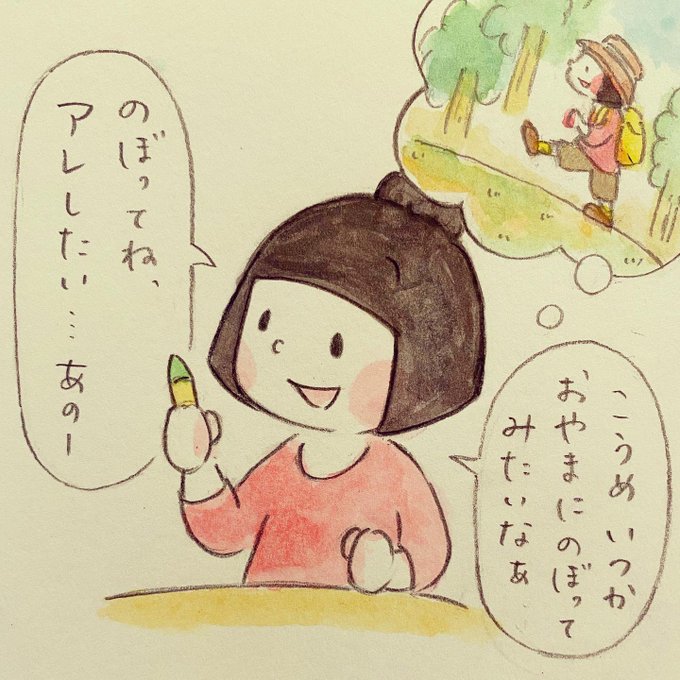 こうめ いつか
おやまにのぼって
みたいなぁ
のぼってね、
アレしたい…あのー